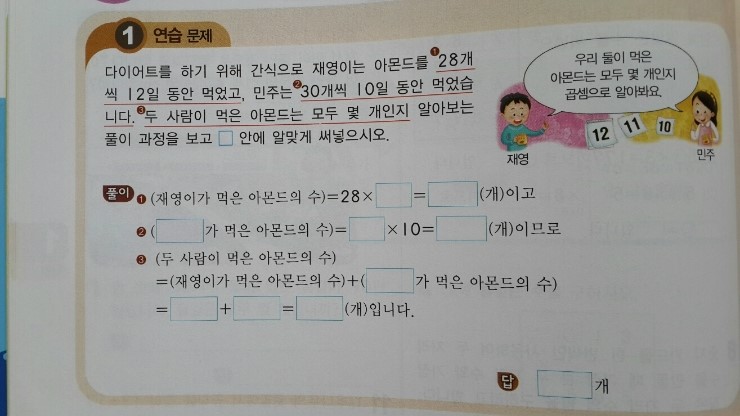 1 연습 문제
다이어트를 하기 위해 간식으로 재영이는 아몬드를 ❶28개
씩 12일 동안 먹었고, 민주는 ❷30개씩 10일 동안 먹었습
니다. ❸두 사람이 먹은 아몬드는 모두 몇 개인지 알아보는
풀이 과정을 보고 □ 안에 알맞게 써넣으시오.
우리 둘이 먹은
아몬드는 모두 몇 개인지
곱셈으로 알아봐요.
12 11 10
재영
민주
풀이 ❶ (재영이가 먹은 아몬드의 수)=28×□=□(개)이고
❷ (□가 먹은 아몬드의 수)=□×10=□(개)이므로
❸ (두 사람이 먹은 아몬드의 수)
=(재영이가 먹은 아몬드의 수)+(□가 먹은 아몬드의 수)
=□+□=□(개)입니다.
답 □개